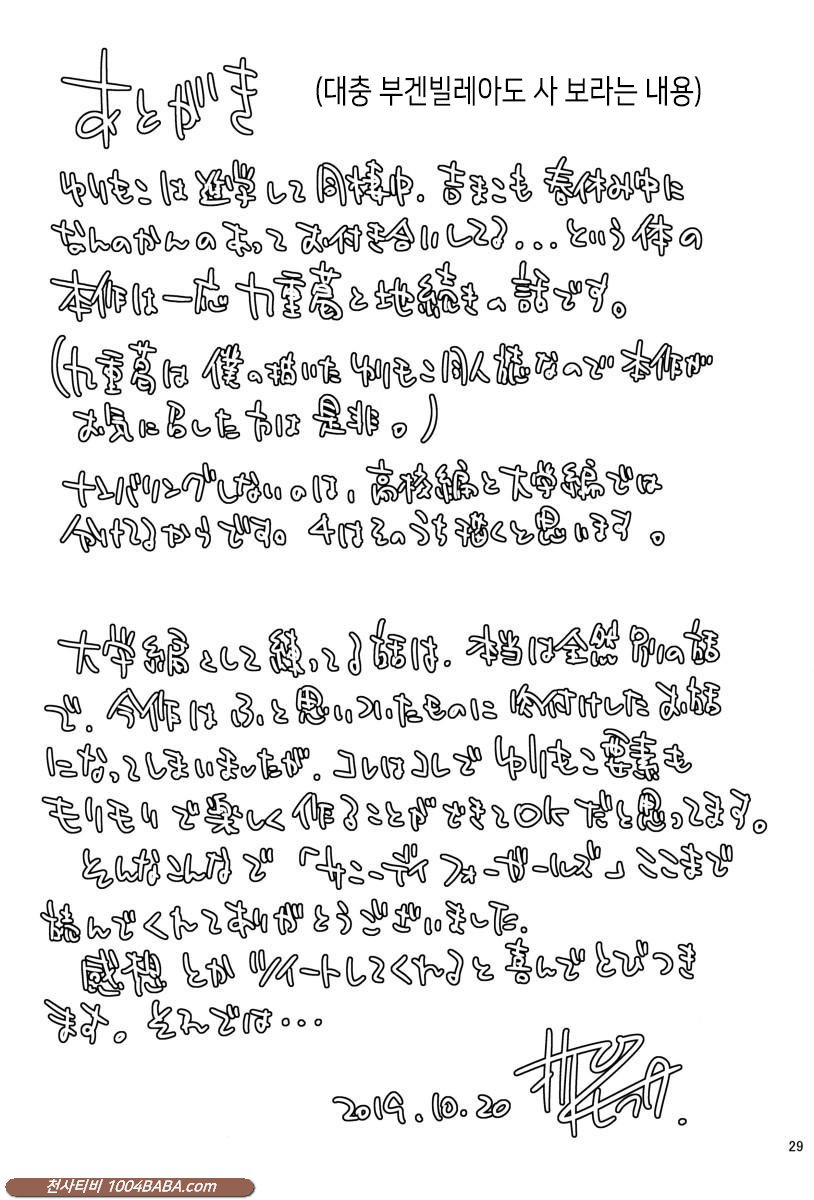 あとがき
(대충 부겐빌레아도 사 보라는 내용)
ゆりもこは進学して同棲中. 吉まこも春休み中に
なんのかんのあってお付き合いしてる...という体の
本作は一応九重葛と地続きの話です。
(九重葛は僕の描いたゆりもこ同人誌なので本作が
お気に召した方は是非。)
ナンバリングしないのは、高校編と大学編では
分けてるからです。4はそのうち描くと思います。
大学編として練ってる話は. 本当は全然別の話
で. 今作はふと思いついたものに肉付けしたお話
になってしまいましたが. コレはコレでゆりもこ要素も
もりモリで楽しく作ることができてOkだと思ってます。
そんなこんなで「サニーディフォーガールズ」ここまで
読んでくれてありがとうございました.
感想とかツイートしてくれると喜んでとびつき
ます。それでは...
2019.10.20
29
천사티비 1004BABA.com